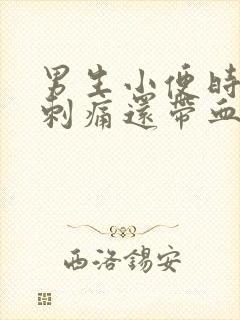 男生小便時
刺痛還帶血
西洛錫安